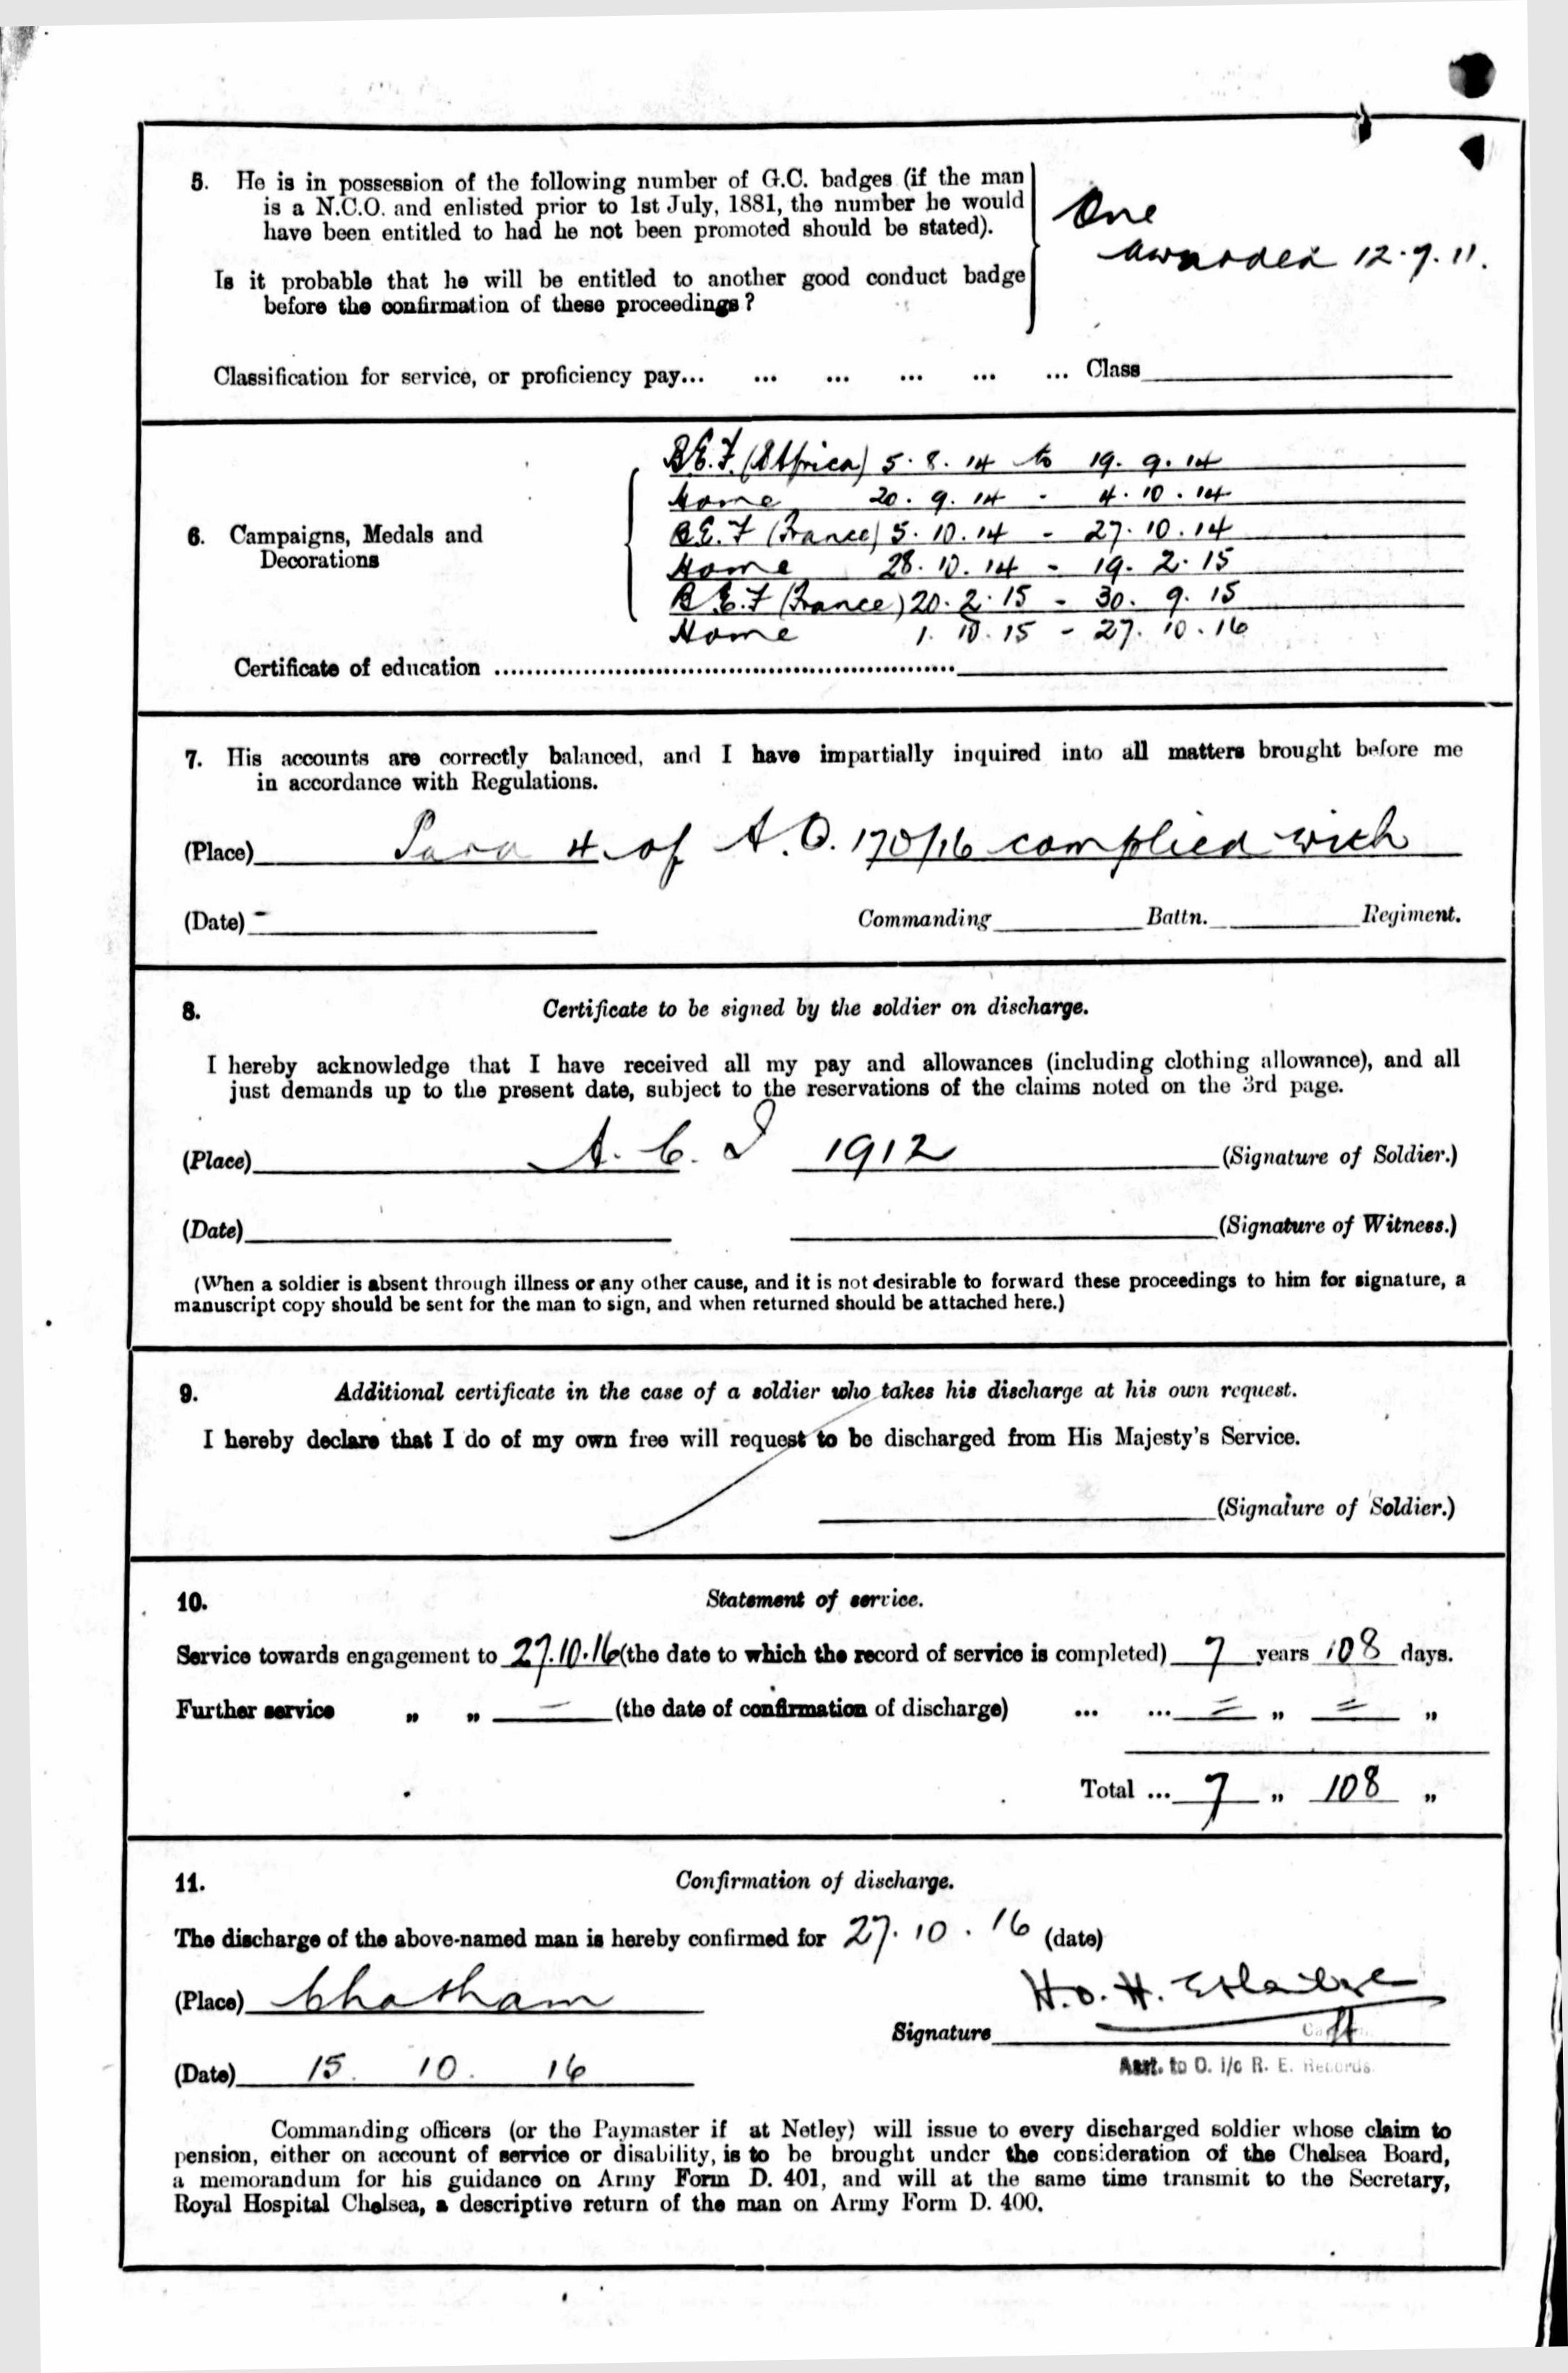 5. He is in possession of the following number of G.C. badges (if the man
is a N.C.O. and enlisted prior to 1st July, 1881, the number he would
have been entitled to had he not been promoted should be stated).
One
awarded 12.7.11.
Is it probable that he will be entitled to another good conduct badge
before the confirmation of these proceedings?
Classification for service, or proficiency pay... ... ... ... ... ... Class
6. Campaigns, Medals and
Decorations
B.E.F. (S Africa) 5.8.14 to 19.9.14
Home 20.9.14 - 4.10.14
B.E.F (France) 5.10.14 - 27.10.14
Home 28.10.14 - 19.2.15
B.E.F (France) 20.2.15 - 30.9.15
Home 1.10.15 - 27.10.16
Certificate of education
7. His accounts are correctly balanced, and I have impartially inquired into all matters brought before me
in accordance with Regulations.
(Place) Para 4 of A.O. 170/16 complied with
(Date) - Commanding Battn. Regiment.
8. Certificate to be signed by the soldier on discharge.
I hereby acknowledge that I have received all my pay and allowances (including clothing allowance), and all
just demands up to the present date, subject to the reservations of the claims noted on the 3rd page.
(Place) A. C. I 1912 (Signature of Soldier.)
(Date) (Signature of Witness.)
(When a soldier is absent through illness or any other cause, and it is not desirable to forward these proceedings to him for signature, a
manuscript copy should be sent for the man to sign, and when returned should be attached here.)
9. Additional certificate in the case of a soldier who takes his discharge at his own request.
I hereby declare that I do of my own free will request to be discharged from His Majesty's Service.
(Signature of Soldier.)
10. Statement of service.
Service towards engagement to 27.10.16 (the date to which the record of service is completed) 7 years 108 days.
Further service „ „ = (the date of confirmation of discharge) ... ... = „ = „
Total ... 7 „ 108 „
11. Confirmation of discharge.
The discharge of the above-named man is hereby confirmed for 27.10.16 (date)
(Place) Chatham
Signature H.O.H.
(Date) 15. 10. 16
Asst. to O. i/c R. E. Records.
Commanding officers (or the Paymaster if at Netley) will issue to every discharged soldier whose claim to
pension, either on account of service or disability, is to be brought under the consideration of the Chelsea Board,
a memorandum for his guidance on Army Form D. 401, and will at the same time transmit to the Secretary,
Royal Hospital Chelsea, a descriptive return of the man on Army Form D. 400.